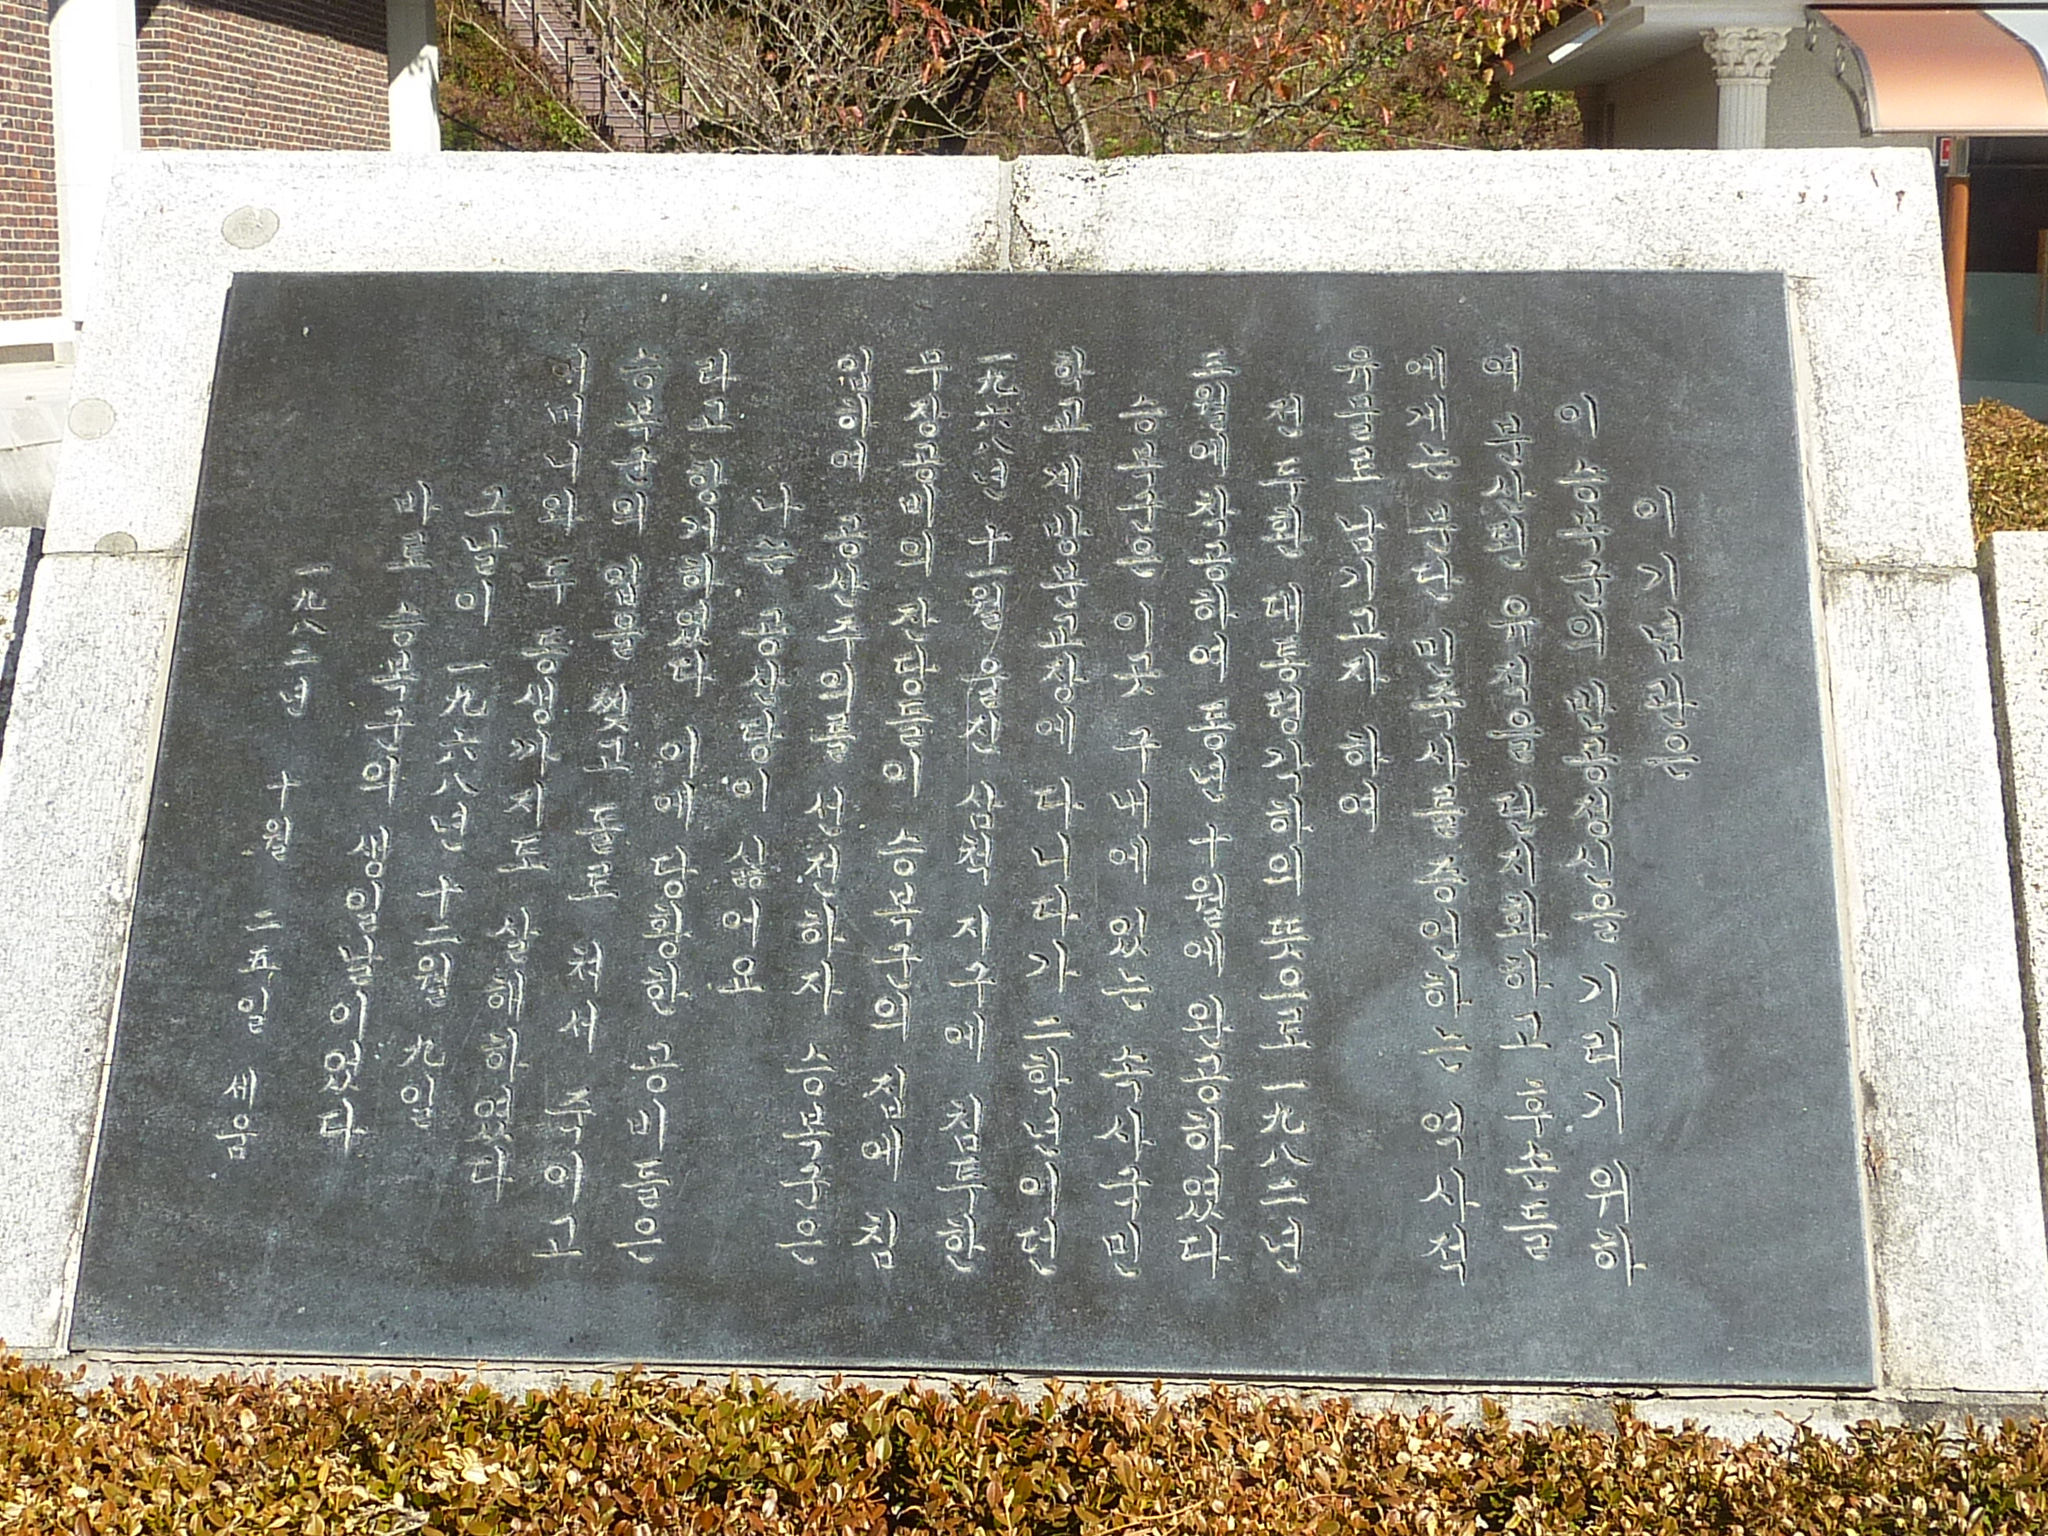 이 기념관은
이승복군의 반공정신을 기리기 위하
여 분산된 유적을 단지화하고 후손들
에게는 분단 민족사를 증언하는 역사적
유물로 남기고자 하여
전두환 대통령각하의 뜻으로 一九八二년
三월에 착공하여 동년 十월에 완공하였다
승복군은 이곳 구내에 있는 속사국민
학교 계방분교장에 다니다가 二학년의던
一九六八년 十一월 울진 삼척 지구에 침투한
무장공비의 잔당들이 승복군의 집에 침
입하여 공산주의를 선전하자 승복군은
나는 공산당이 싫어요
라고 항거하였다 이에 당황한 공비들은
승복군의 입을 찢고 돌로 쳐서 죽이고
어머니와 두 동생까지도 살해하였다
그날이 一九六八년 十二월 九일
바로 승복군의 생일날이었다
一九八二년 十월 二五일 세움